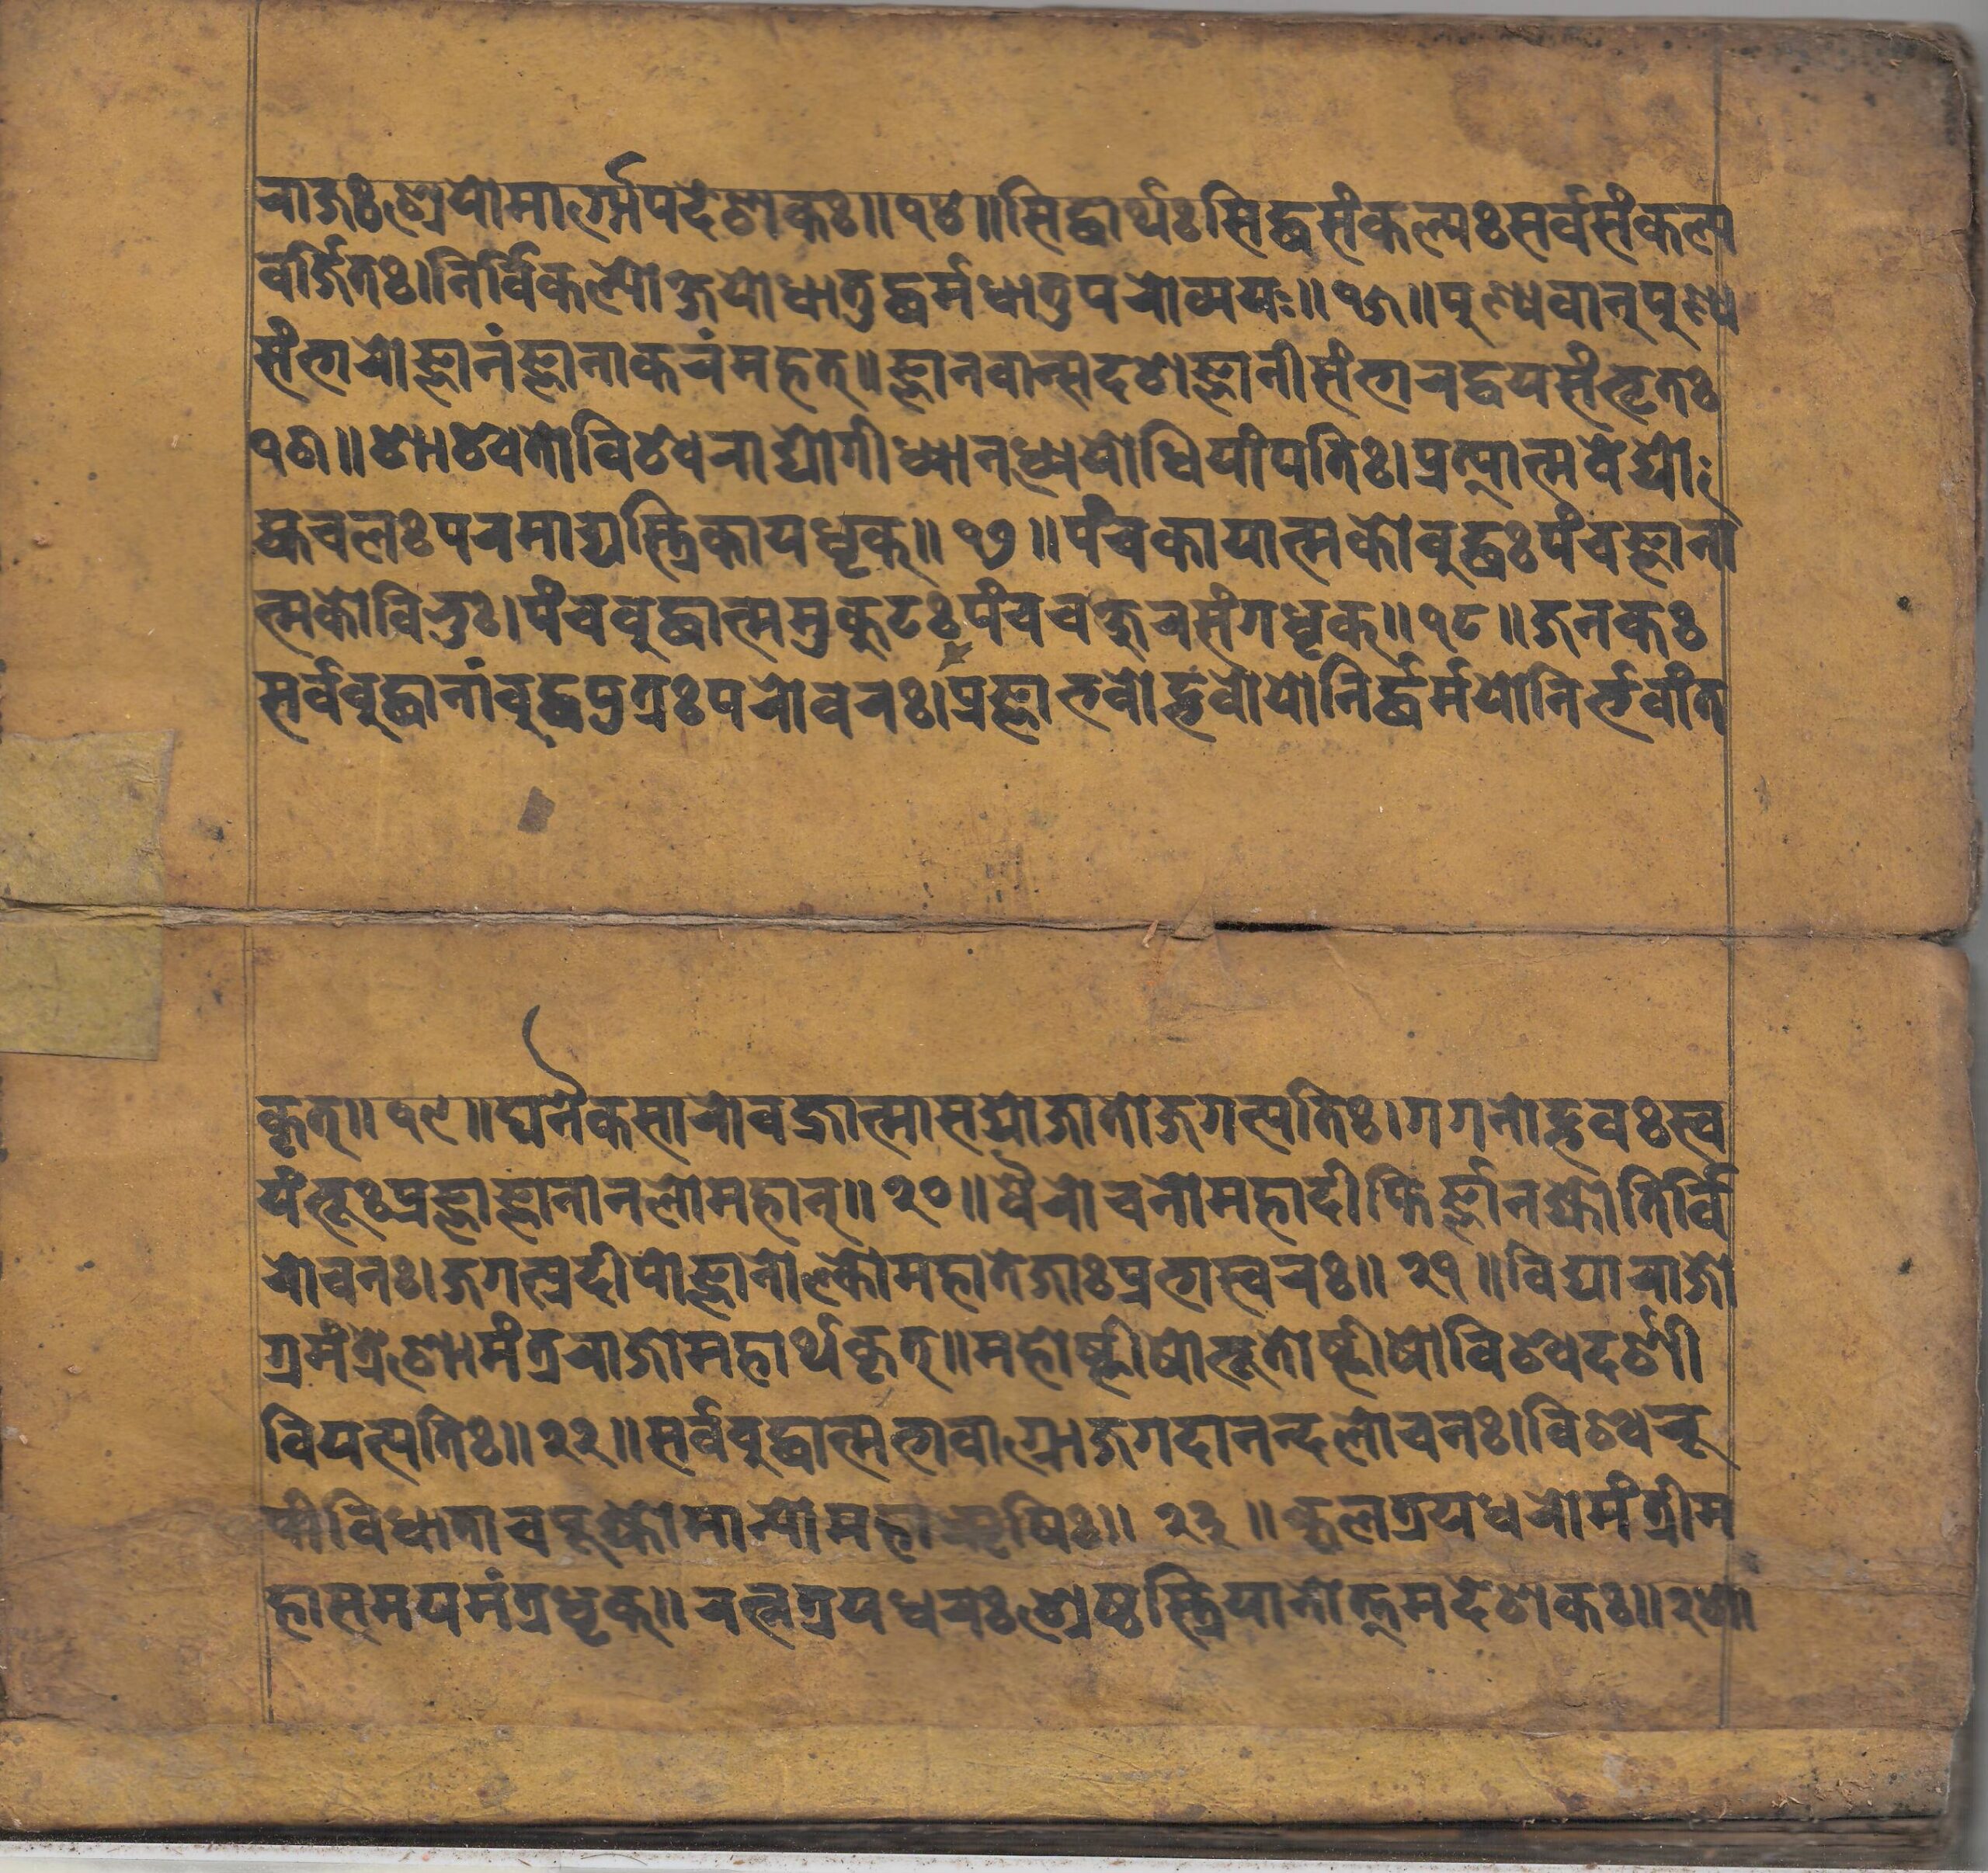 राजः श्रेयोमार्गोपदेशकः॥१४॥सिद्धार्थः सिद्धसंकल्पः सर्वसंकल्प
वर्जितः।निर्विकल्पोक्षयोधातुर्द्धर्मधातुपरोव्ययः॥१५॥पुण्यवान्पुण्य
संभारोज्ञानंज्ञानाकरंमहत्॥ज्ञानवान्सदशज्ञानीसंभारद्वयसंभृतः
१६॥शाश्वतोविश्वराद्योगीध्यानध्येयोधियांपतिः।प्रत्यात्मवेद्यो
ह्यचलः परमाद्यस्त्रिकायधृक्॥१७॥पंचकायात्मकोबुद्धः पंचज्ञाना
त्मकोविभुः।पंचबुद्धात्ममुकुटः पंचचक्षुरसंगधृक्॥१८॥जनकः
सर्वबुद्धानांबुद्धपुत्रः परोवरः।प्रज्ञाभवोद्भवोयोनिर्द्धर्मयोनिर्भवांत
कृत्॥१९॥घनैकसारोवज्रात्मासद्योजातोजगत्पतिः।गगनोद्भवः स्व
यंभूः प्रज्ञाज्ञानानलोमहान्॥२०॥वैरोचनोमहादीप्तिर्ज्ञानज्योतिर्वि
रोचनः।जगत्प्रदीपोज्ञानोल्कोमहातेजाः प्रभास्वरः॥२१॥विद्याराजो
ग्रमंत्रेशोमंत्रराजोमहार्थकृत्॥महोष्णीषोद्भूतोष्णीषोविश्वदर्शी
वियत्पतिः॥२२॥सर्वबुद्धात्मभावाग्रोजगदानन्दलोचनः।विश्वरू
पीविधाताचपूज्योमान्योमहाऋषिः॥२३॥कुलत्रयधरोमंत्रीम
हासमयमंत्रधृक्॥रत्नत्रयधरः श्रेष्ठस्त्रियानोत्तमदेशकः॥२४॥